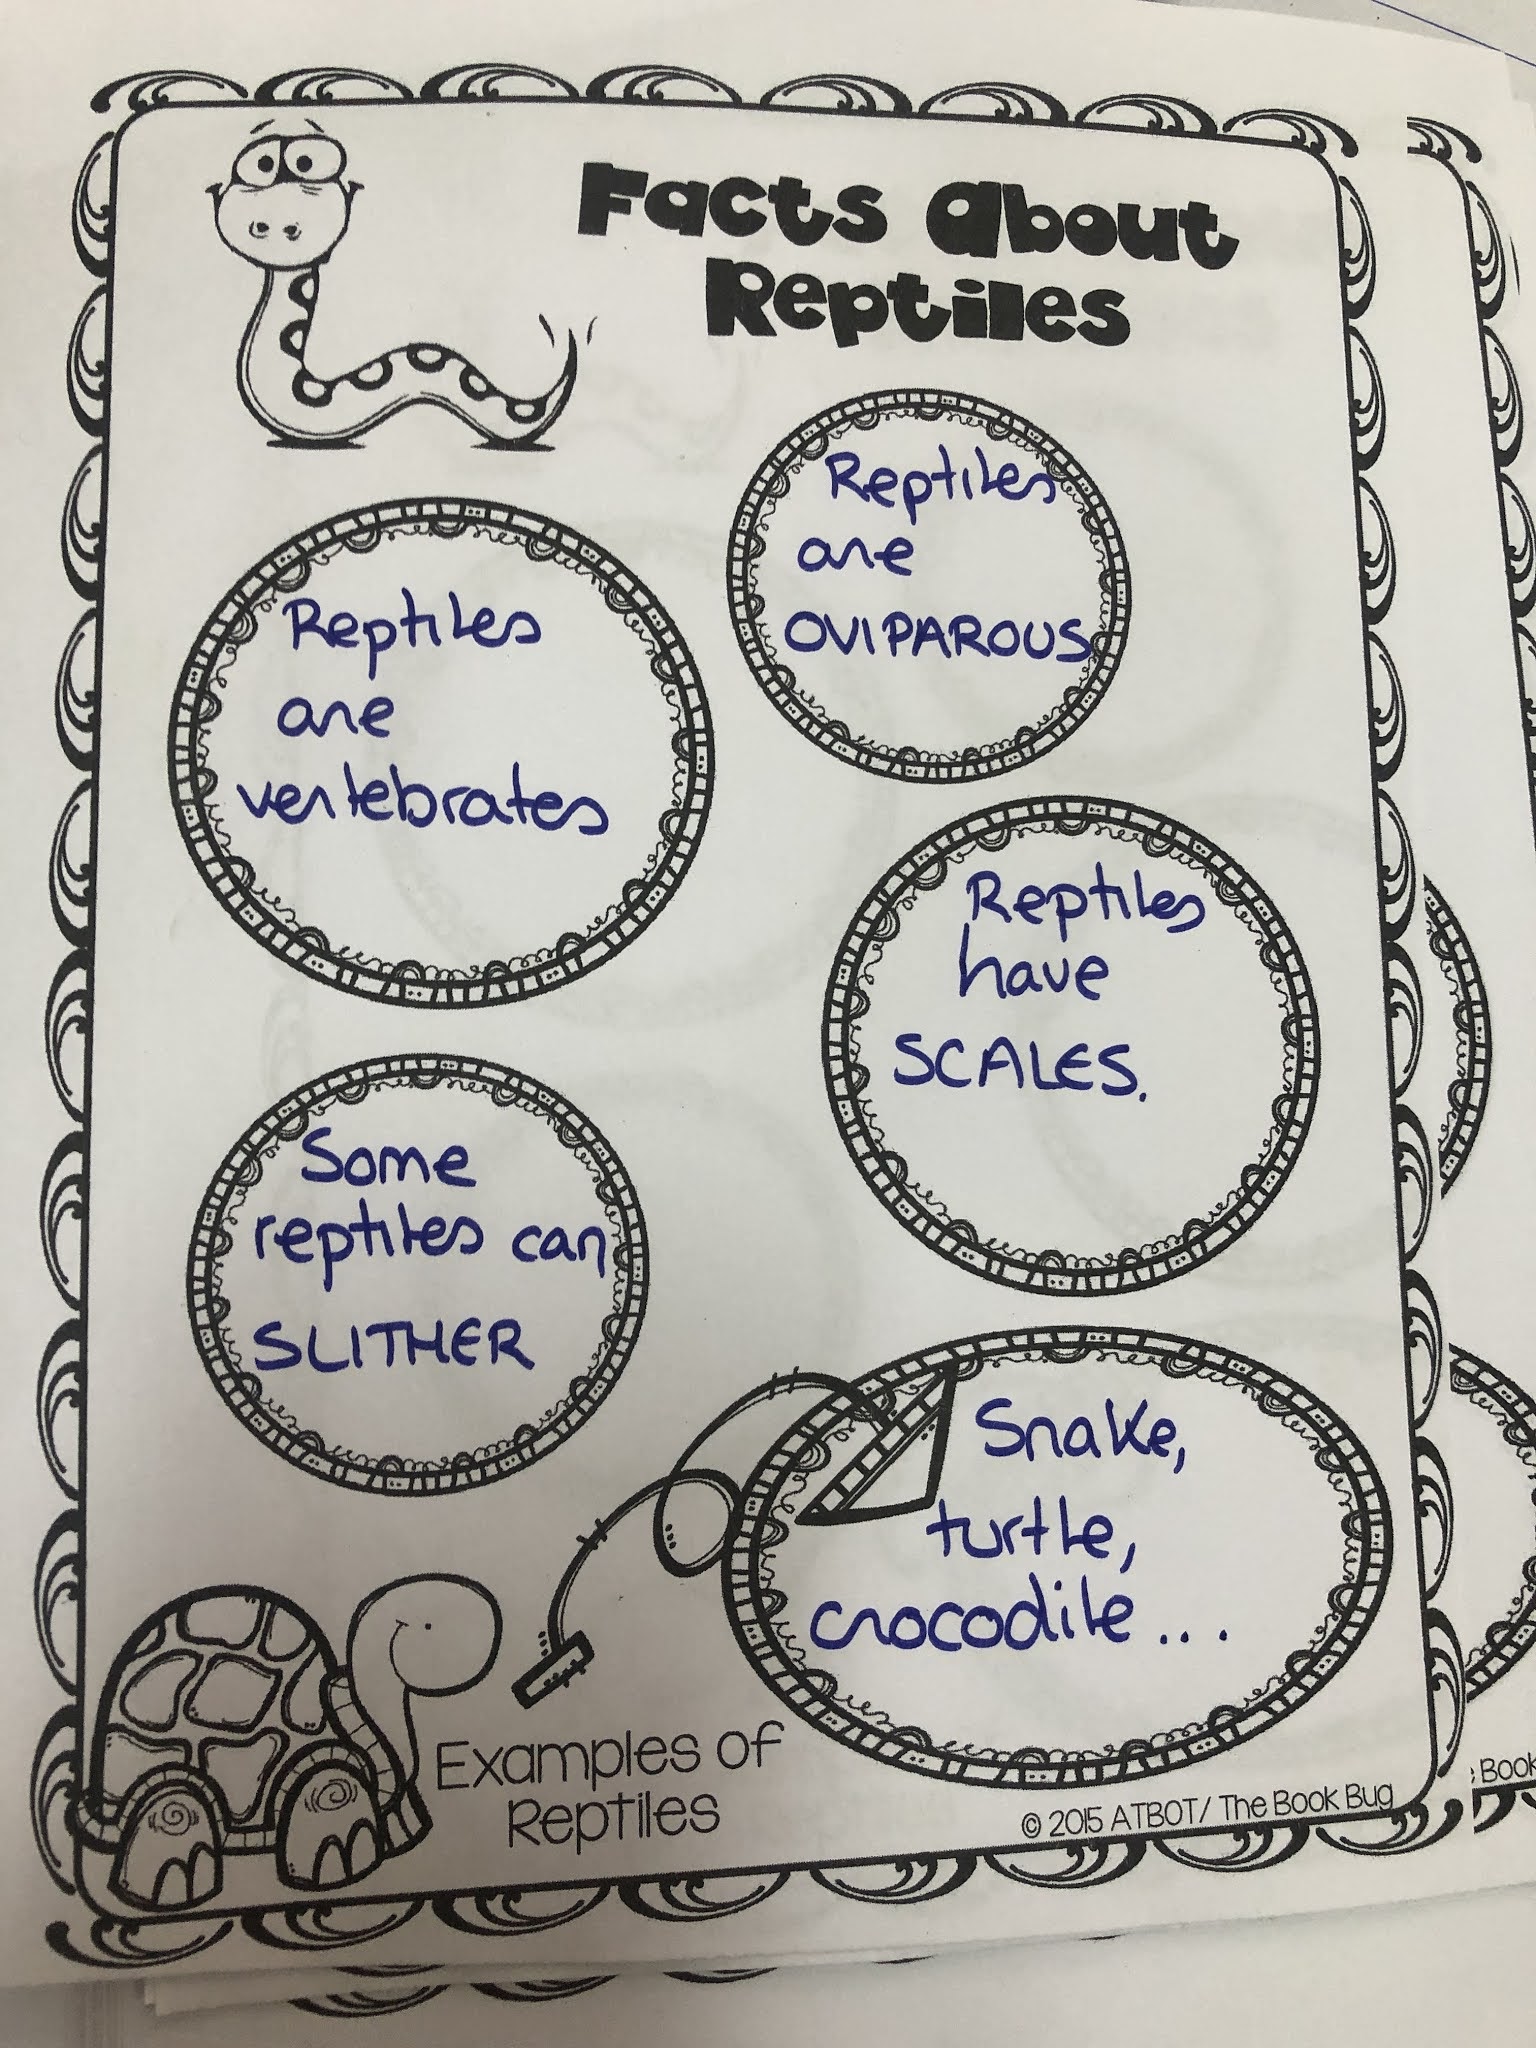 Facts About
Reptiles
Reptiles
are
OVIPAROUS
Reptiles
are
vertebrates
Reptiles
have
SCALES.
Some
reptiles can
SLITHER
Snake,
turtle,
crocodile...
Examples of
Reptiles
© 2015 ATBOT/ The Book Bug
Book